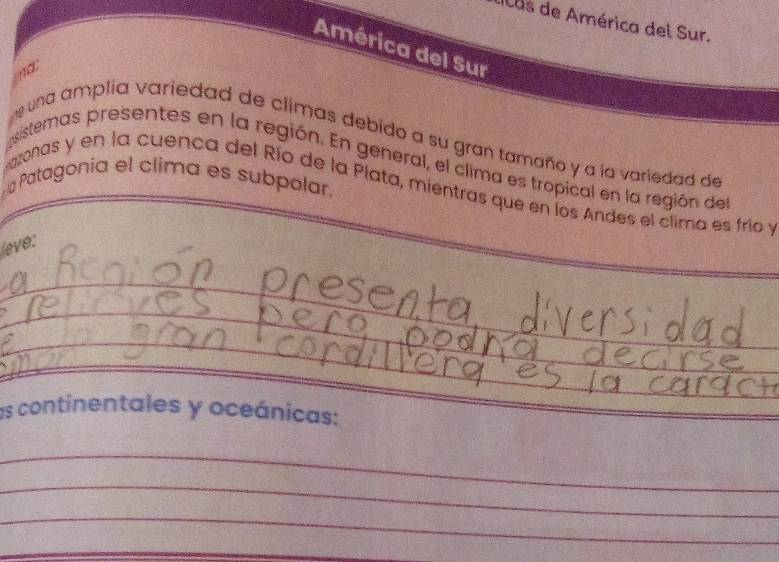 de América del Sur.
América del Sur
una amplia variedad de climas debido a su gran tamaño y a la variedad de
presentes en la región. En general, el clima es tropical en la región del
y en la cuenca del Río de la Plata, mientras que en los Andes el clima es frío y
la Patagonia el clima es subpolar.
leve:
a Región presenta diversidad
relieves pero podría decirse
gran cordillera es la caract
continentales y oceánicas: